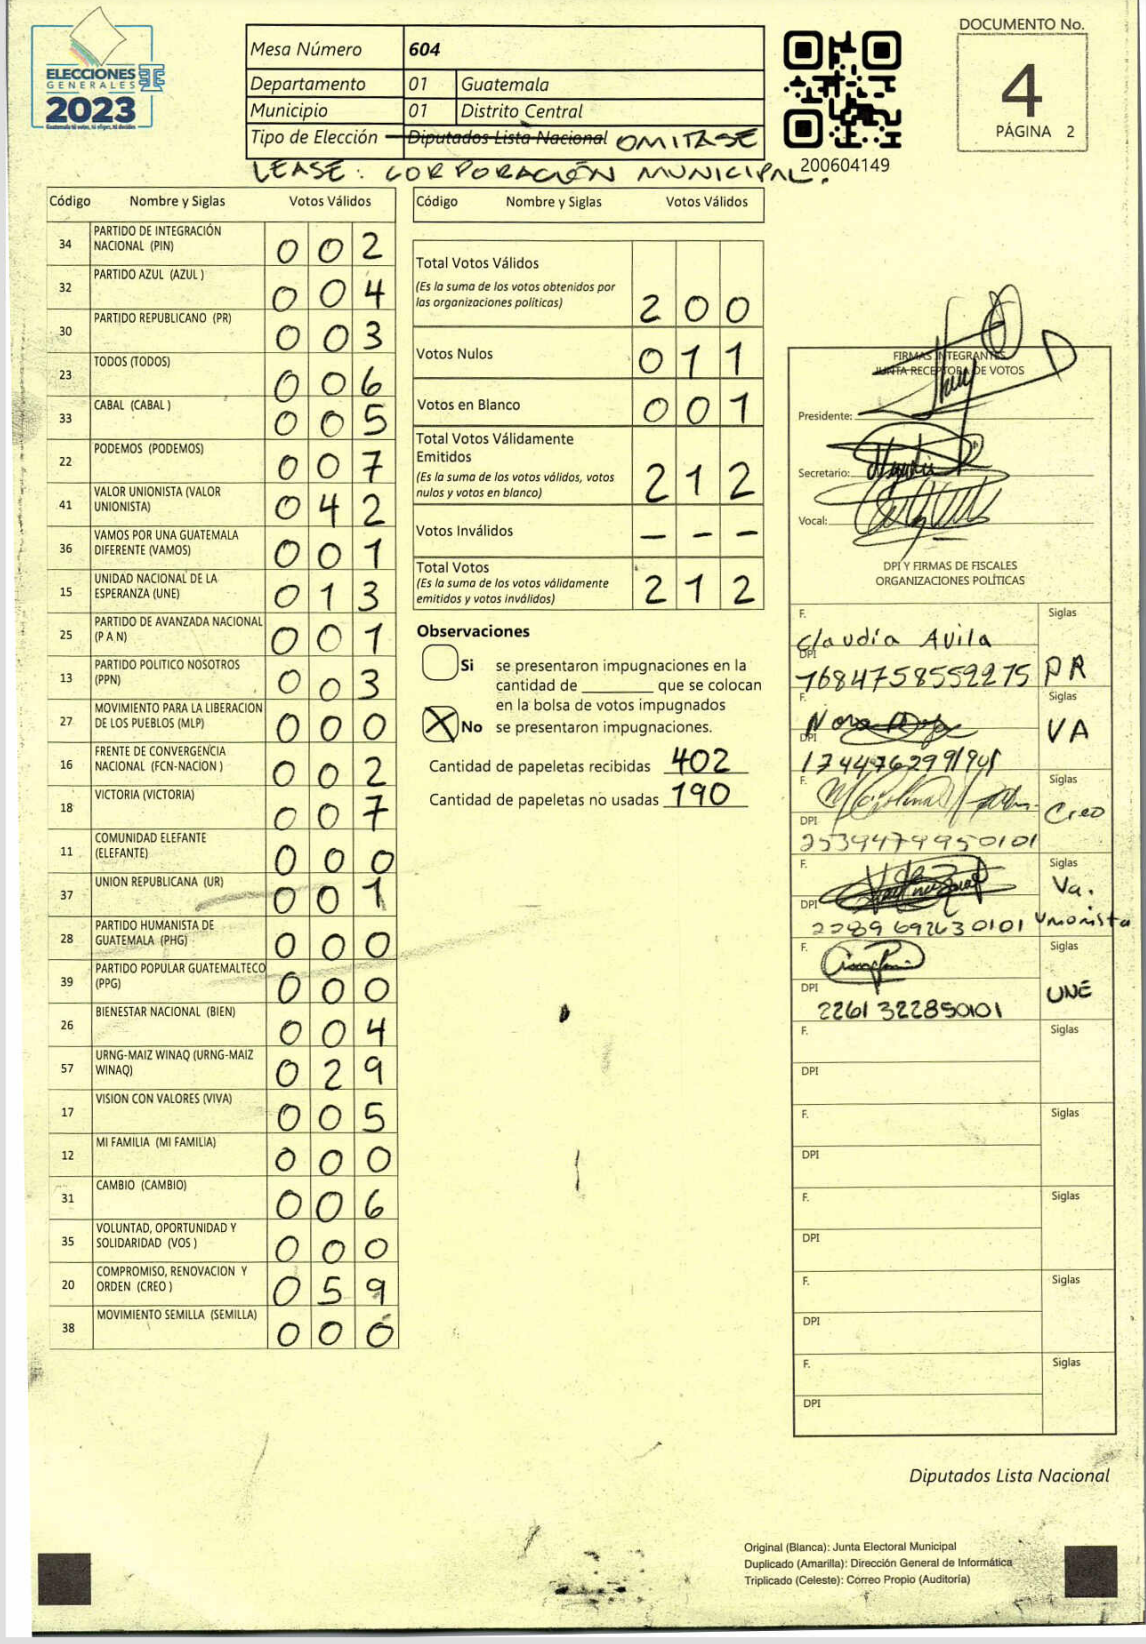 ELECCIONES
GENERALES
2023
Mesa Número 604
Departamento 01 Guatemala
Municipio 01 Distrito Central
Tipo de Elección Diputados Lista Nacional OMITASE
LEASE: CORPORACIÓN MUNICIPAL.
200604149
DOCUMENTO No.
4
PÁGINA 2
Código Nombre y Siglas Votos Válidos
34 PARTIDO DE INTEGRACIÓN NACIONAL (PIN) 0 0 2
32 PARTIDO AZUL (AZUL ) 0 0 4
30 PARTIDO REPUBLICANO (PR) 0 0 3
23 TODOS (TODOS) 0 0 6
33 CABAL (CABAL ) 0 0 5
22 PODEMOS (PODEMOS) 0 0 7
41 VALOR UNIONISTA (VALOR UNIONISTA) 0 4 2
36 VAMOS POR UNA GUATEMALA DIFERENTE (VAMOS) 0 0 1
15 UNIDAD NACIONAL DE LA ESPERANZA (UNE) 0 1 3
25 PARTIDO DE AVANZADA NACIONAL (P A N) 0 0 1
13 PARTIDO POLITICO NOSOTROS (PPN) 0 0 3
27 MOVIMIENTO PARA LA LIBERACION DE LOS PUEBLOS (MLP) 0 0 0
16 FRENTE DE CONVERGENCIA NACIONAL (FCN-NACION ) 0 0 2
18 VICTORIA (VICTORIA) 0 0 7
11 COMUNIDAD ELEFANTE (ELEFANTE) 0 0 0
37 UNION REPUBLICANA (UR) 0 0 1
28 PARTIDO HUMANISTA DE GUATEMALA (PHG) 0 0 0
39 PARTIDO POPULAR GUATEMALTECO (PPG) 0 0 0
26 BIENESTAR NACIONAL (BIEN) 0 0 4
57 URNG-MAIZ WINAQ (URNG-MAIZ WINAQ) 0 2 9
17 VISION CON VALORES (VIVA) 0 0 5
12 MI FAMILIA (MI FAMILIA) 0 0 0
31 CAMBIO (CAMBIO) 0 0 6
35 VOLUNTAD, OPORTUNIDAD Y SOLIDARIDAD (VOS ) 0 0 0
20 COMPROMISO, RENOVACION Y ORDEN (CREO ) 0 5 9
38 MOVIMIENTO SEMILLA (SEMILLA) 0 0 0
Código Nombre y Siglas Votos Válidos
Total Votos Válidos
(Es la suma de los votos obtenidos por
las organizaciones políticas) 2 0 0
Votos Nulos 0 1 1
Votos en Blanco 0 0 1
Total Votos Válidamente
Emitidos
(Es la suma de los votos válidos, votos
nulos y votos en blanco) 2 1 2
Votos Inválidos – – –
Total Votos
(Es la suma de los votos válidamente
emitidos y votos inválidos) 2 1 2
Observaciones
Si se presentaron impugnaciones en la
cantidad de ________ que se colocan
en la bolsa de votos impugnados
X No se presentaron impugnaciones.
Cantidad de papeletas recibidas 402
Cantidad de papeletas no usadas 190
FIRMAS INTEGRANTES
JUNTA RECEPTORA DE VOTOS
Presidente:
Secretario:
Vocal:
DPI Y FIRMAS DE FISCALES
ORGANIZACIONES POLÍTICAS
F. Siglas
Claudia Avila
DPI
1684758552275 PR
F. Siglas
DPI VA
F. Siglas
DPI Creo
2539479950101
F. Siglas
DPI Va.
2289 692630101 Unionista
F. Siglas
DPI
2261 322850101 UNE
F. Siglas
DPI
F. Siglas
DPI
F. Siglas
DPI
F. Siglas
DPI
F. Siglas
DPI
Diputados Lista Nacional
Original (Blanca): Junta Electoral Municipal
Duplicado (Amarilla): Dirección General de Informática
Triplicado (Celeste): Correo Propio (Auditoría)